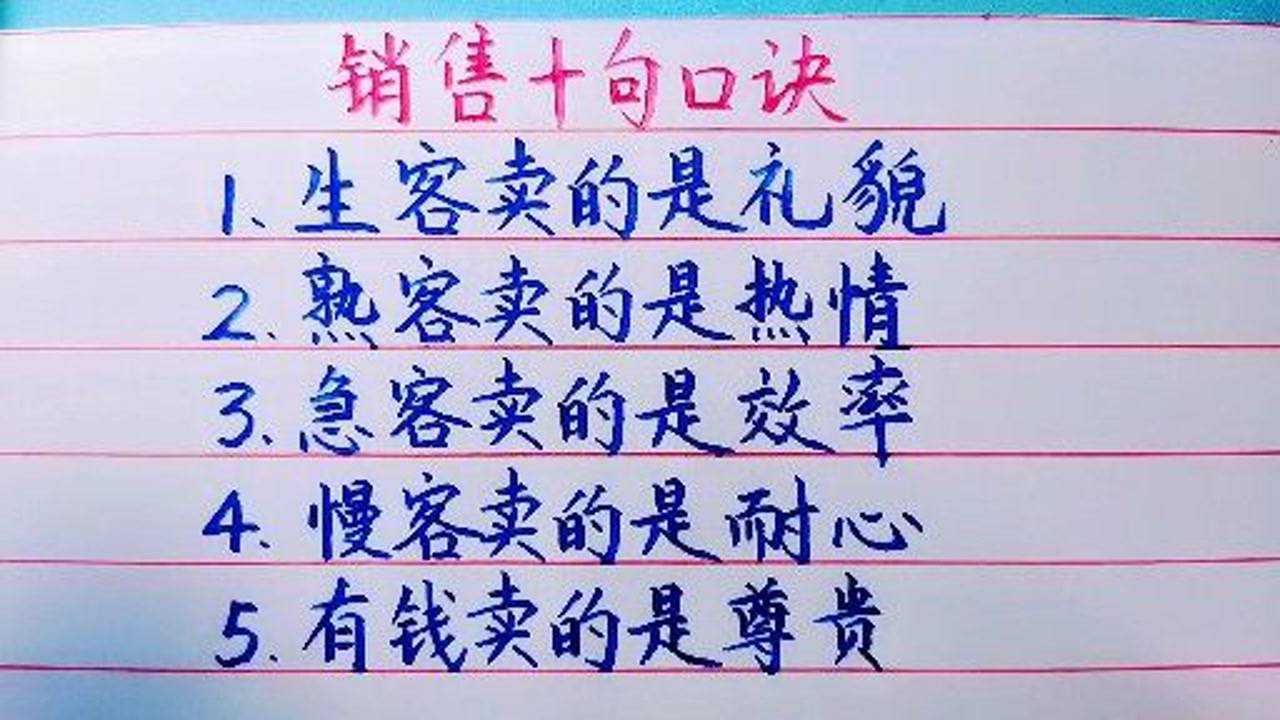 销售十句口诀
1、生客卖的是礼貌
2、熟客卖的是热情
3、急客卖的是效率
4、慢客卖的是耐心
5、有钱卖的是尊贵